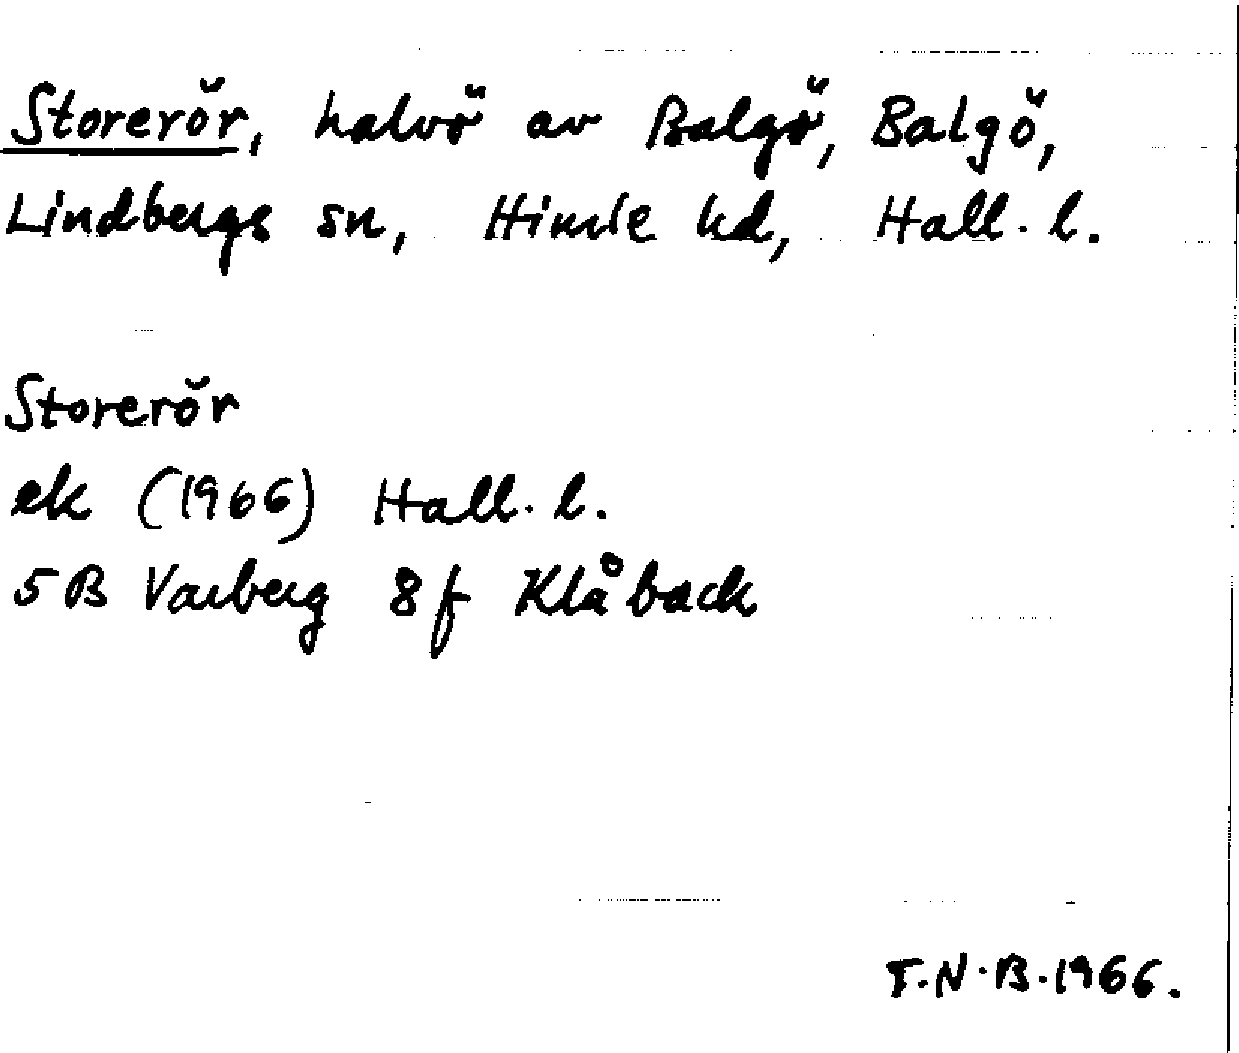 Storerör, halvö av Balgö, Balgö,
Lindbergs sn, Himle hd, Hall. l.
Storerör
ek (1966) Hall. l.
5B Varberg 8f Klåback
T.N.B.1966.